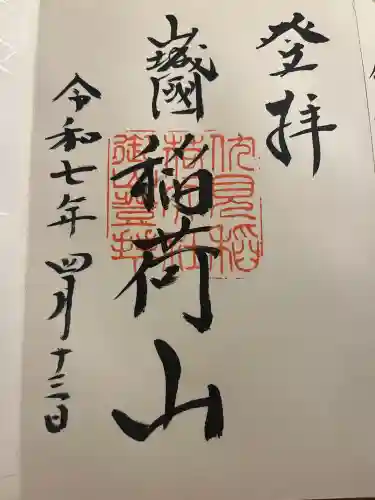 登拝
山城國
稲荷山
令和七年四月十三日